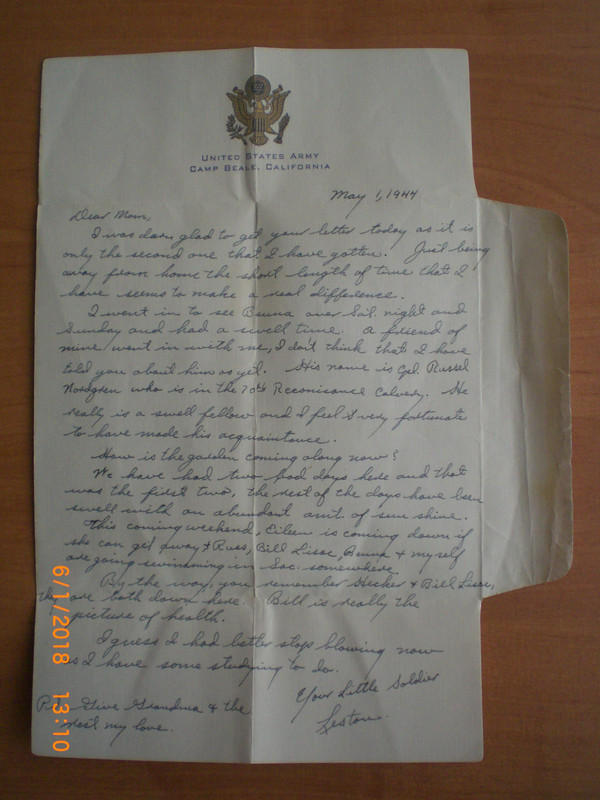 UNITED STATES ARMY
CAMP BEALE, CALIFORNIA
May 1, 1944
Dear Mom,
I was darn glad to get your letter today as it is
only the second one that I have gotten. Just being
away from home the short length of time that I
have seems to make a real difference.
I went in to see Benna over Sat. night and
Sunday and had a swell time. A friend of
mine went in with me, I don't think that I have
told you about him as yet. His name is Cpl. Russel
Nordgren who is in the 70th Reconisance Calvery. He
really is a swell fellow and I feel very fortunate
to have made his acquaintance.
How is the garden coming along now?
We have had two bad days here and that
was the first two, the rest of the days have been
swell with an abundant amt. of sun shine.
This coming weekend, Eileen is coming down if
she can get away & Russ, Bill Lissc, Benna & myself
are going swimming in Sac. somewhere.
By the way, you remember Hecker & Bill Lissc,
they are both down here. Bill is really the
picture of health.
I guess I had better stop blowing now
as I have some studying to do.
Your Little Soldier
P.S. Give Grandma & the
rest my love.
6/1/2018 13:10